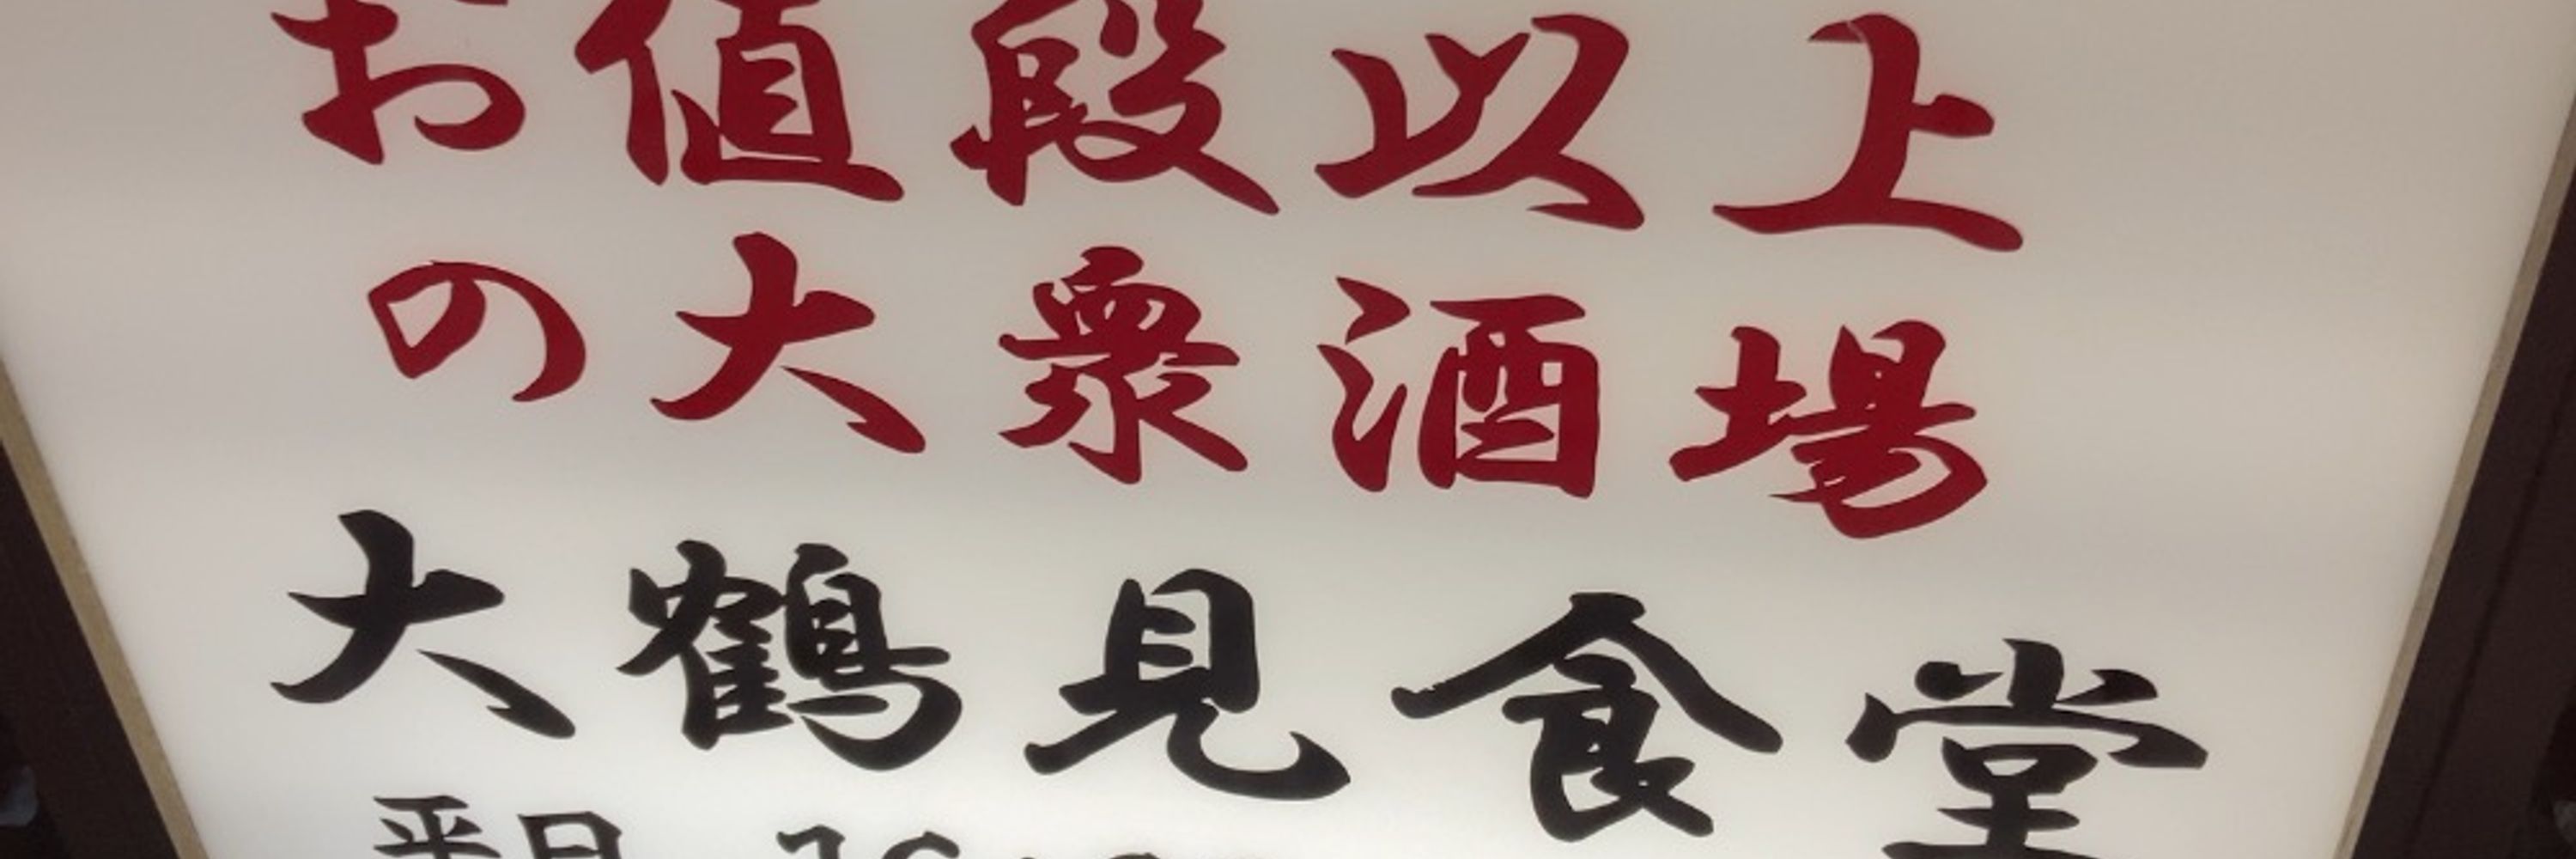 お値段以上
の大衆酒場
大鶴見食堂
平日